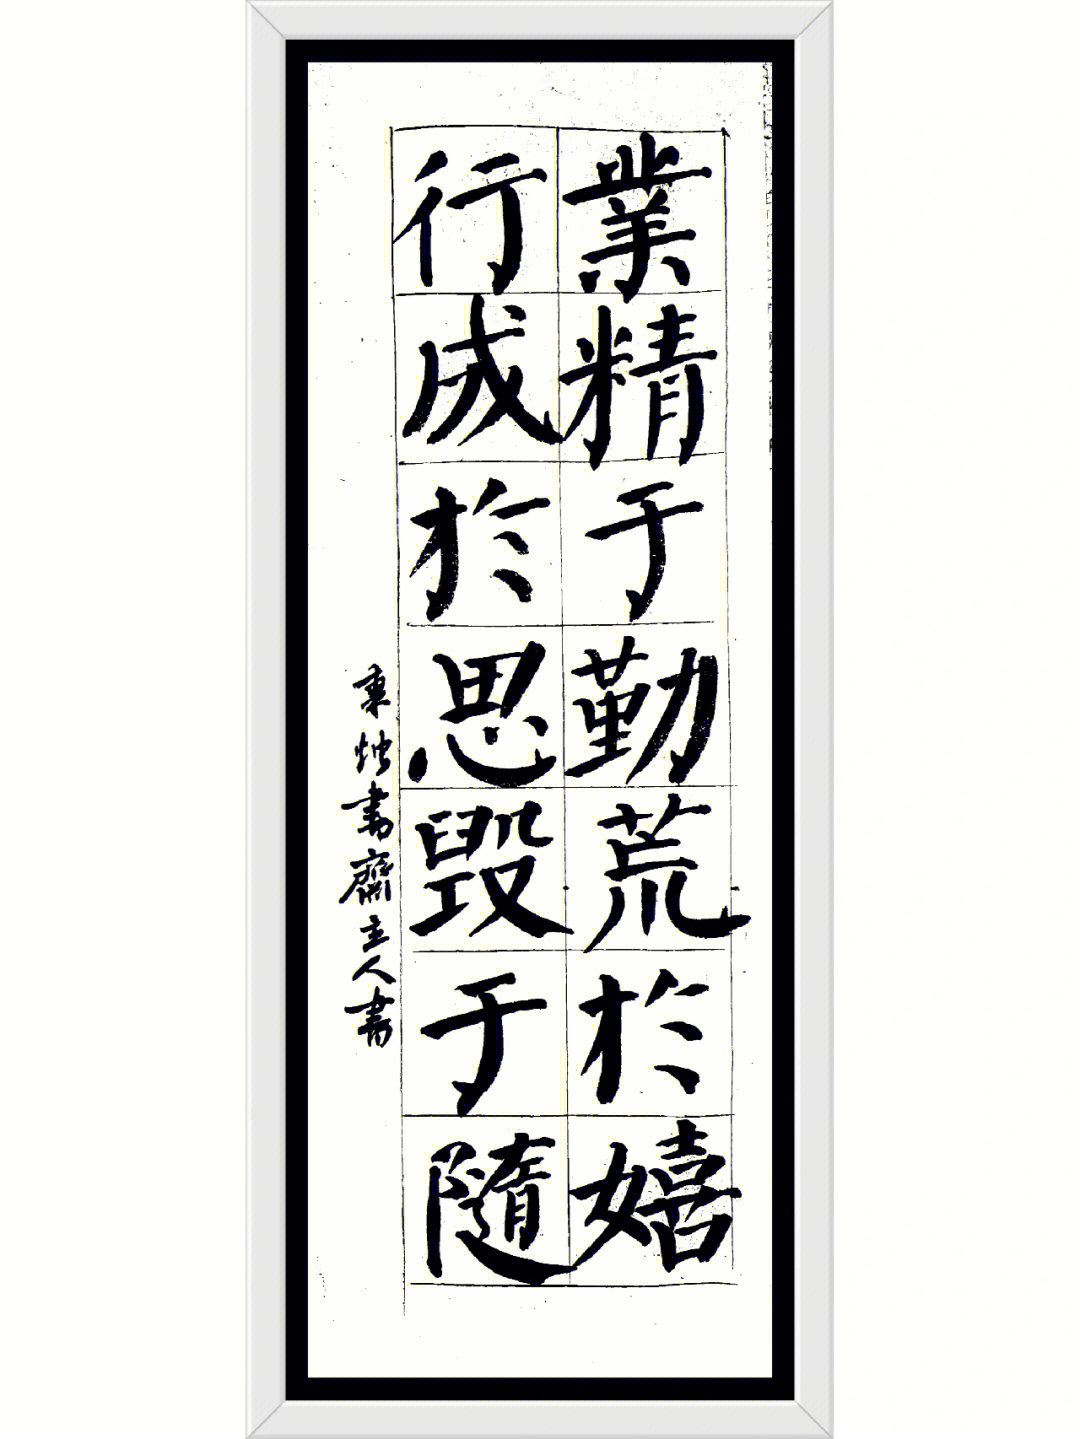 業精于勤荒於嬉
行成於思毁于随
秉烛書齋主人書